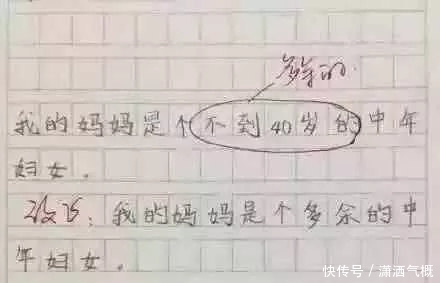 多余的
我的妈妈是个不到40岁的中年
妇女。
改为：我的妈妈是个多余的中
年妇女。
快传号／潇洒气概